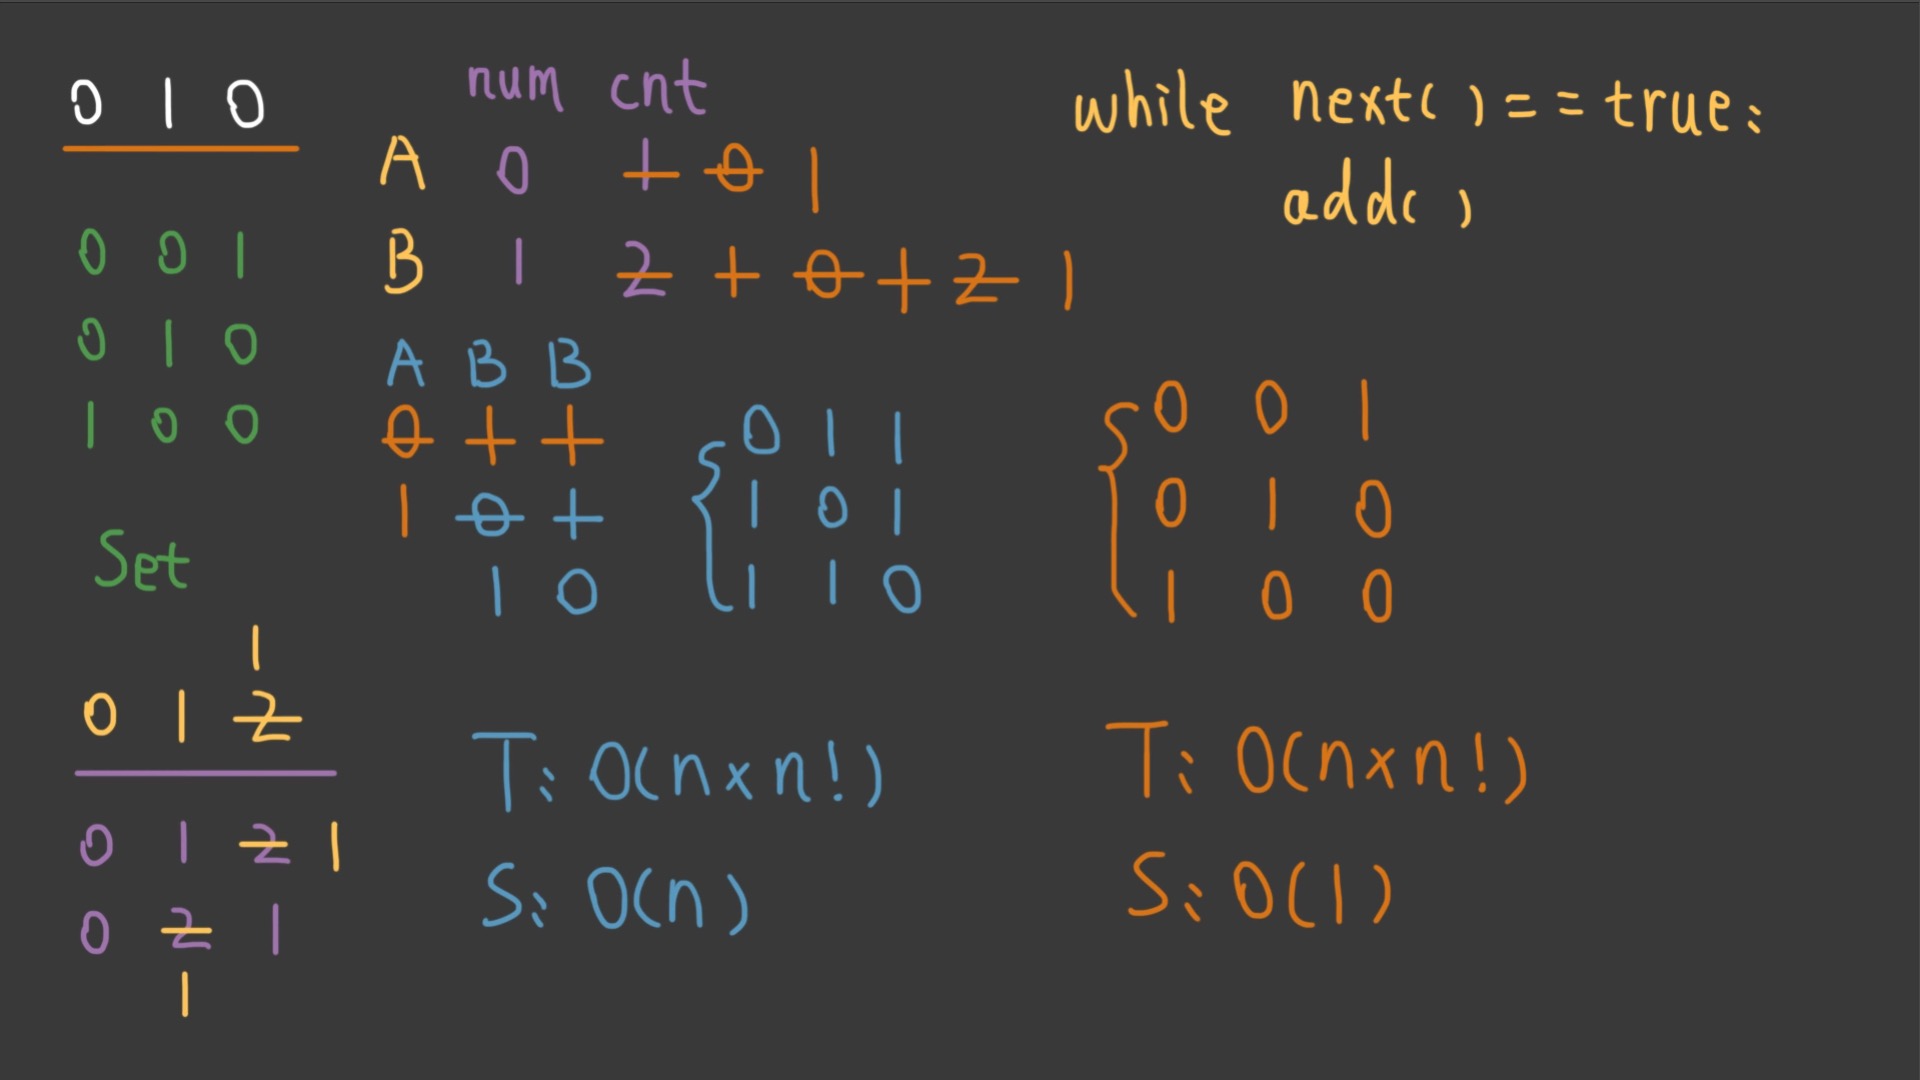 0 1 0
0 0 1
0 1 0
1 0 0
Set
1
0 1 2
0 1 2 1
0 2 1
1
num cnt
A 0 1 0 1
B 1 2 1 0 1 2 1
A B B
0 1 1
1 0 1
1 0
0 1 1
1 0 1
1 1 0
T: O(n×n!)
S: O(n)
while next()==true:
add()
0 0 1
0 1 0
1 0 0
T: O(n×n!)
S: O(1)